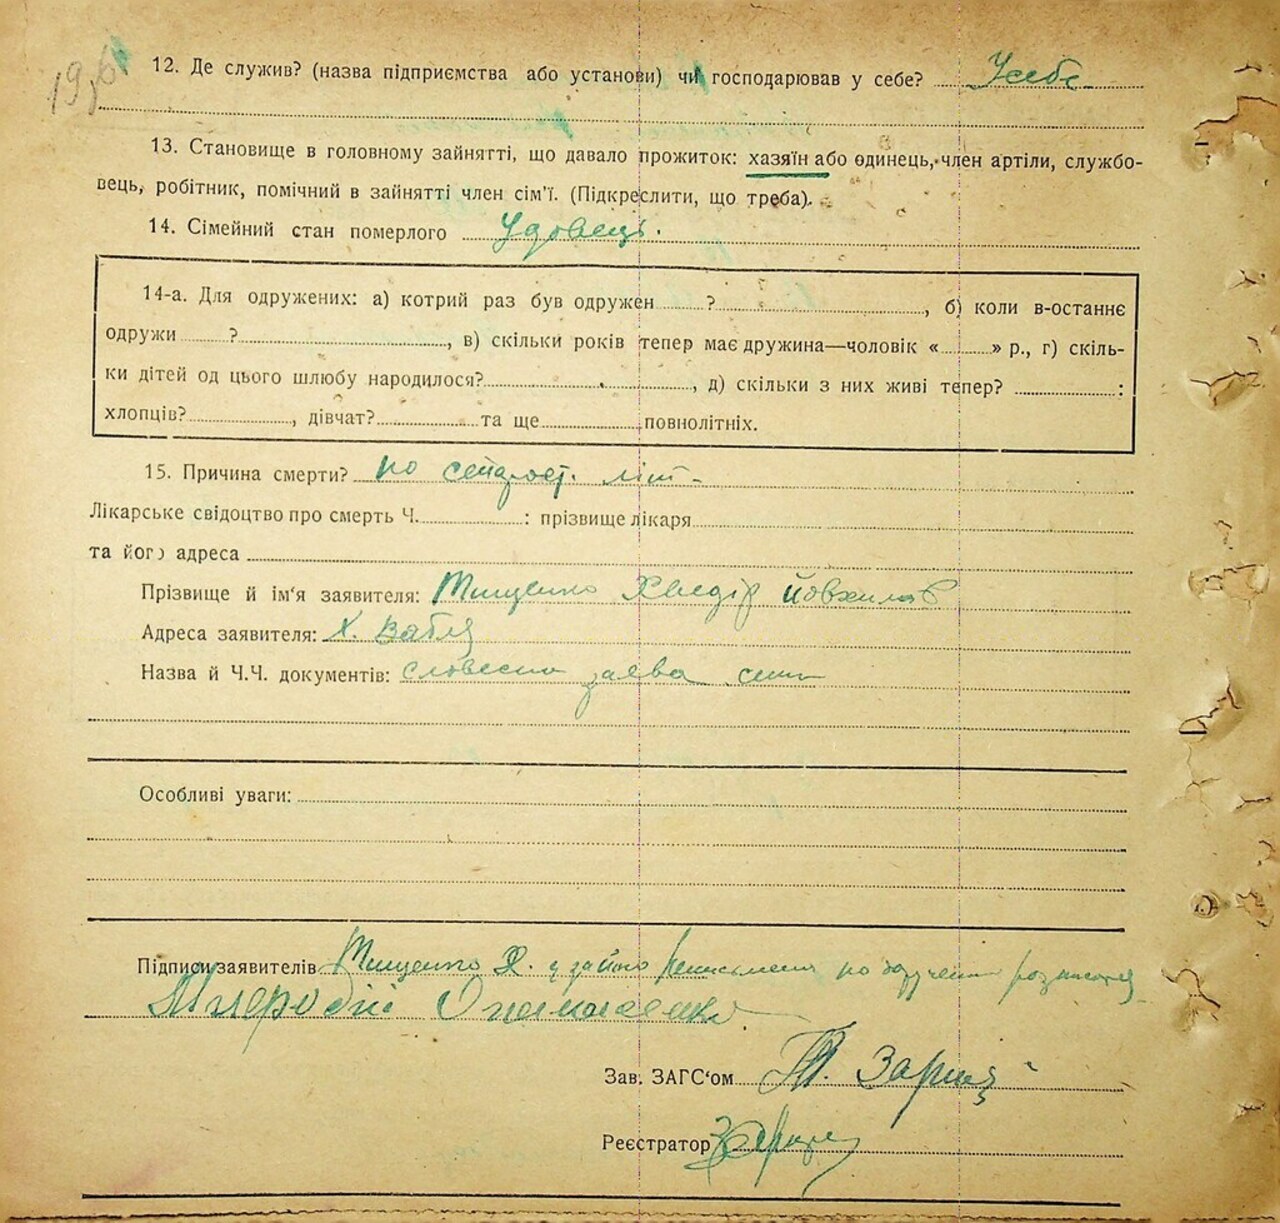 12. Де служив? (назва підприємства або установи) чи господарював у себе? У себе
13. Становище в головному зайнятті, що давало прожиток: хазяїн або одинець, член артілі, службо-
вець, робітник, помічний в зайнятті член сім'ї. (Підкреслити, що треба).
14. Сімейний стан померлого Удовець.
14-а. Для одружених: а) котрий раз був одружен ? , б) коли в-останнє
одружи ? , в) скільки років тепер має дружина—чоловік « » р., г) скіль-
ки дітей од цього шлюбу народилося? , д) скільки з них живі тепер? :
хлопців? , дівчат? та ще повнолітніх.
15. Причина смерти? по літ
Лікарське свідоцтво про смерть Ч. : прізвище лікаря
та його адреса
Прізвище й ім'я заявителя: Тищенко Хведір
Адреса заявителя: Х.
Назва й Ч.Ч. документів: словесна заява
Особливі уваги:
Підписи заявителів Тищенко Х.
Зав. ЗАГС'ом
Реєстратор